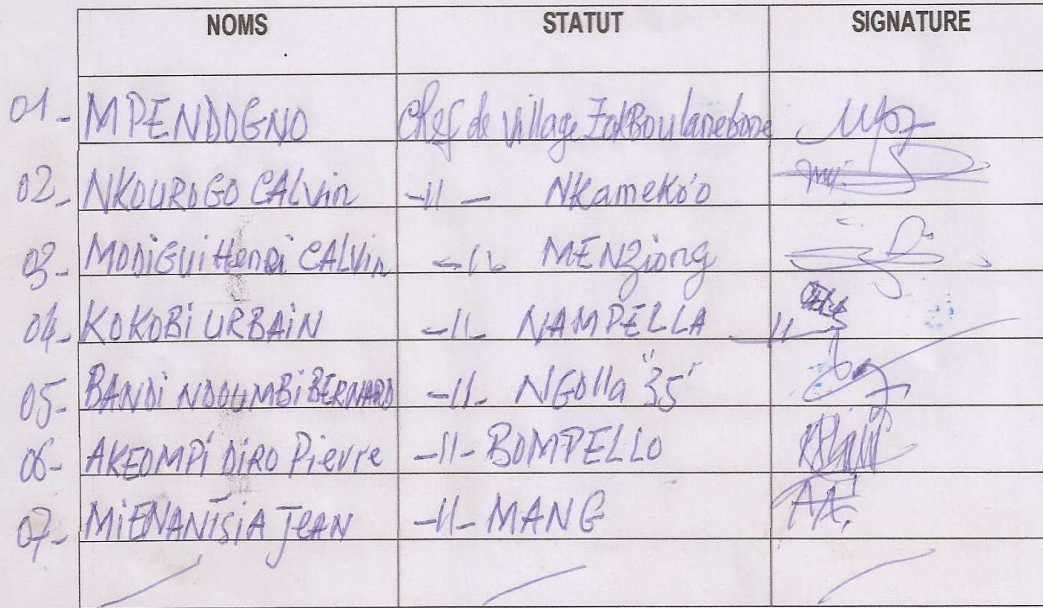 NOMS STATUT SIGNATURE
01- MPENDOGNO Chef de village
02- NKOUROGO CALVin -11- NKameko'o
03- MODiGUi Henri CALVin -11- MENZiong
04- KOKOBi URBAiN -11- NAMPELLA
05- BANDi NDOUMBi BERNARD -11- NGOlla "35"
06- AKEOMPi DiRO Pierre -11- BOMPELLO
07- MiENANTSiA JEAN -11- MANG